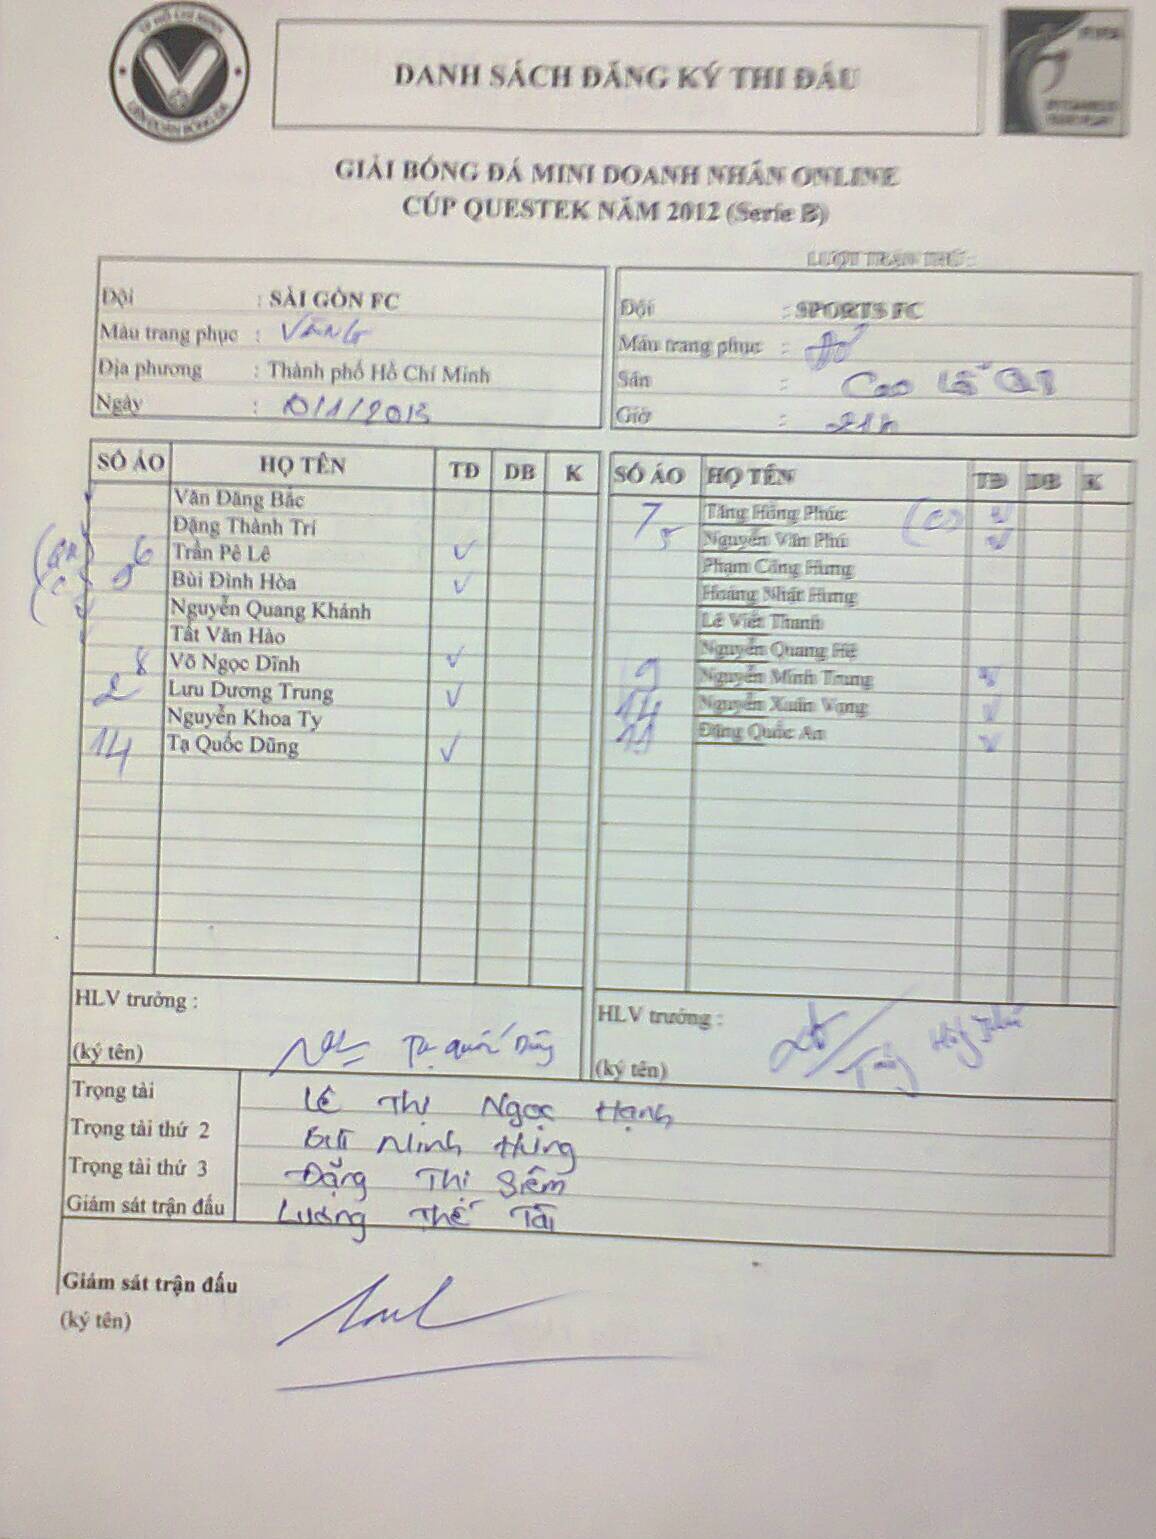 TP HỒ CHÍ MINH
LIÊN ĐOÀN BÓNG ĐÁ
DANH SÁCH ĐĂNG KÝ THI ĐẤU
GIẢI BÓNG ĐÁ MINI DOANH NHÂN ONLINE
CÚP QUESTEK NĂM 2012 (Serie B)
LƯỢT TRẬN THỨ :
Đội : SÀI GÒN FC
Màu trang phục : VÀNG
Địa phương : Thành phố Hồ Chí Minh
Ngày : 10/1/2013
Đội : SPORTS FC
Màu trang phục : Đỏ
Sân : Cao Lỗ Q8
Giờ : 21h
SỐ ÁO HỌ TÊN TĐ DB K
Văn Đăng Bắc
Đặng Thành Trí
(GK) 6 Trần Pê Lê ✓
(C) Bùi Đình Hòa ✓
Nguyễn Quang Khánh
Tất Văn Hào
8 Võ Ngọc Dĩnh ✓
2 Lưu Dương Trung ✓
Nguyễn Khoa Ty
14 Tạ Quốc Dũng ✓
SỐ ÁO HỌ TÊN TĐ DB K
7 Tăng Hồng Phúc (C) ✓
5 Nguyễn Văn Phú ✓
Phạm Công Hưng
Hoàng Nhật Hưng
Lê Viết Thanh
Nguyễn Quang Hệ
9 Nguyễn Minh Trung ✓
14 Nguyễn Xuân Vọng ✓
11 Đặng Quốc An ✓
HLV trưởng :
(ký tên) Tạ Quốc Dũng
HLV trưởng :
(ký tên) Tăng Hồng Phúc
Trọng tài Lê Thị Ngọc Hạnh
Trọng tài thứ 2 Bùi Minh Hùng
Trọng tài thứ 3 Đặng Thị Siêm
Giám sát trận đấu Lương Thế Tài
Giám sát trận đấu
(ký tên)